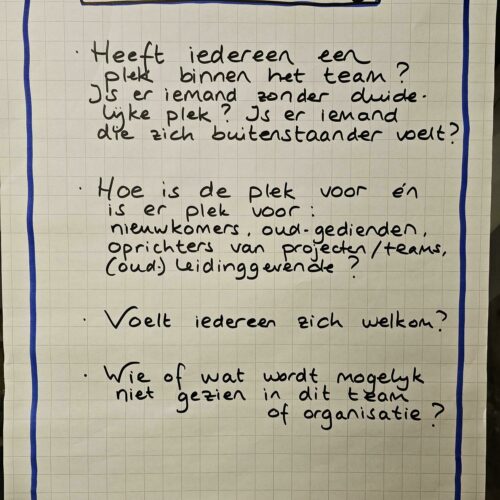 · Heeft iedereen een
plek binnen het team?
Is er iemand zonder duide-
lijke plek? Is er iemand
die zich buitenstaander voelt?
· Hoe is de plek voor én
is er plek voor:
nieuwkomers, oud-gedienden,
oprichters van projecten/teams,
(oud-) leidinggevende?
· Voelt iedereen zich welkom?
· Wie of wat wordt mogelijk
niet gezien in dit team
of organisatie?